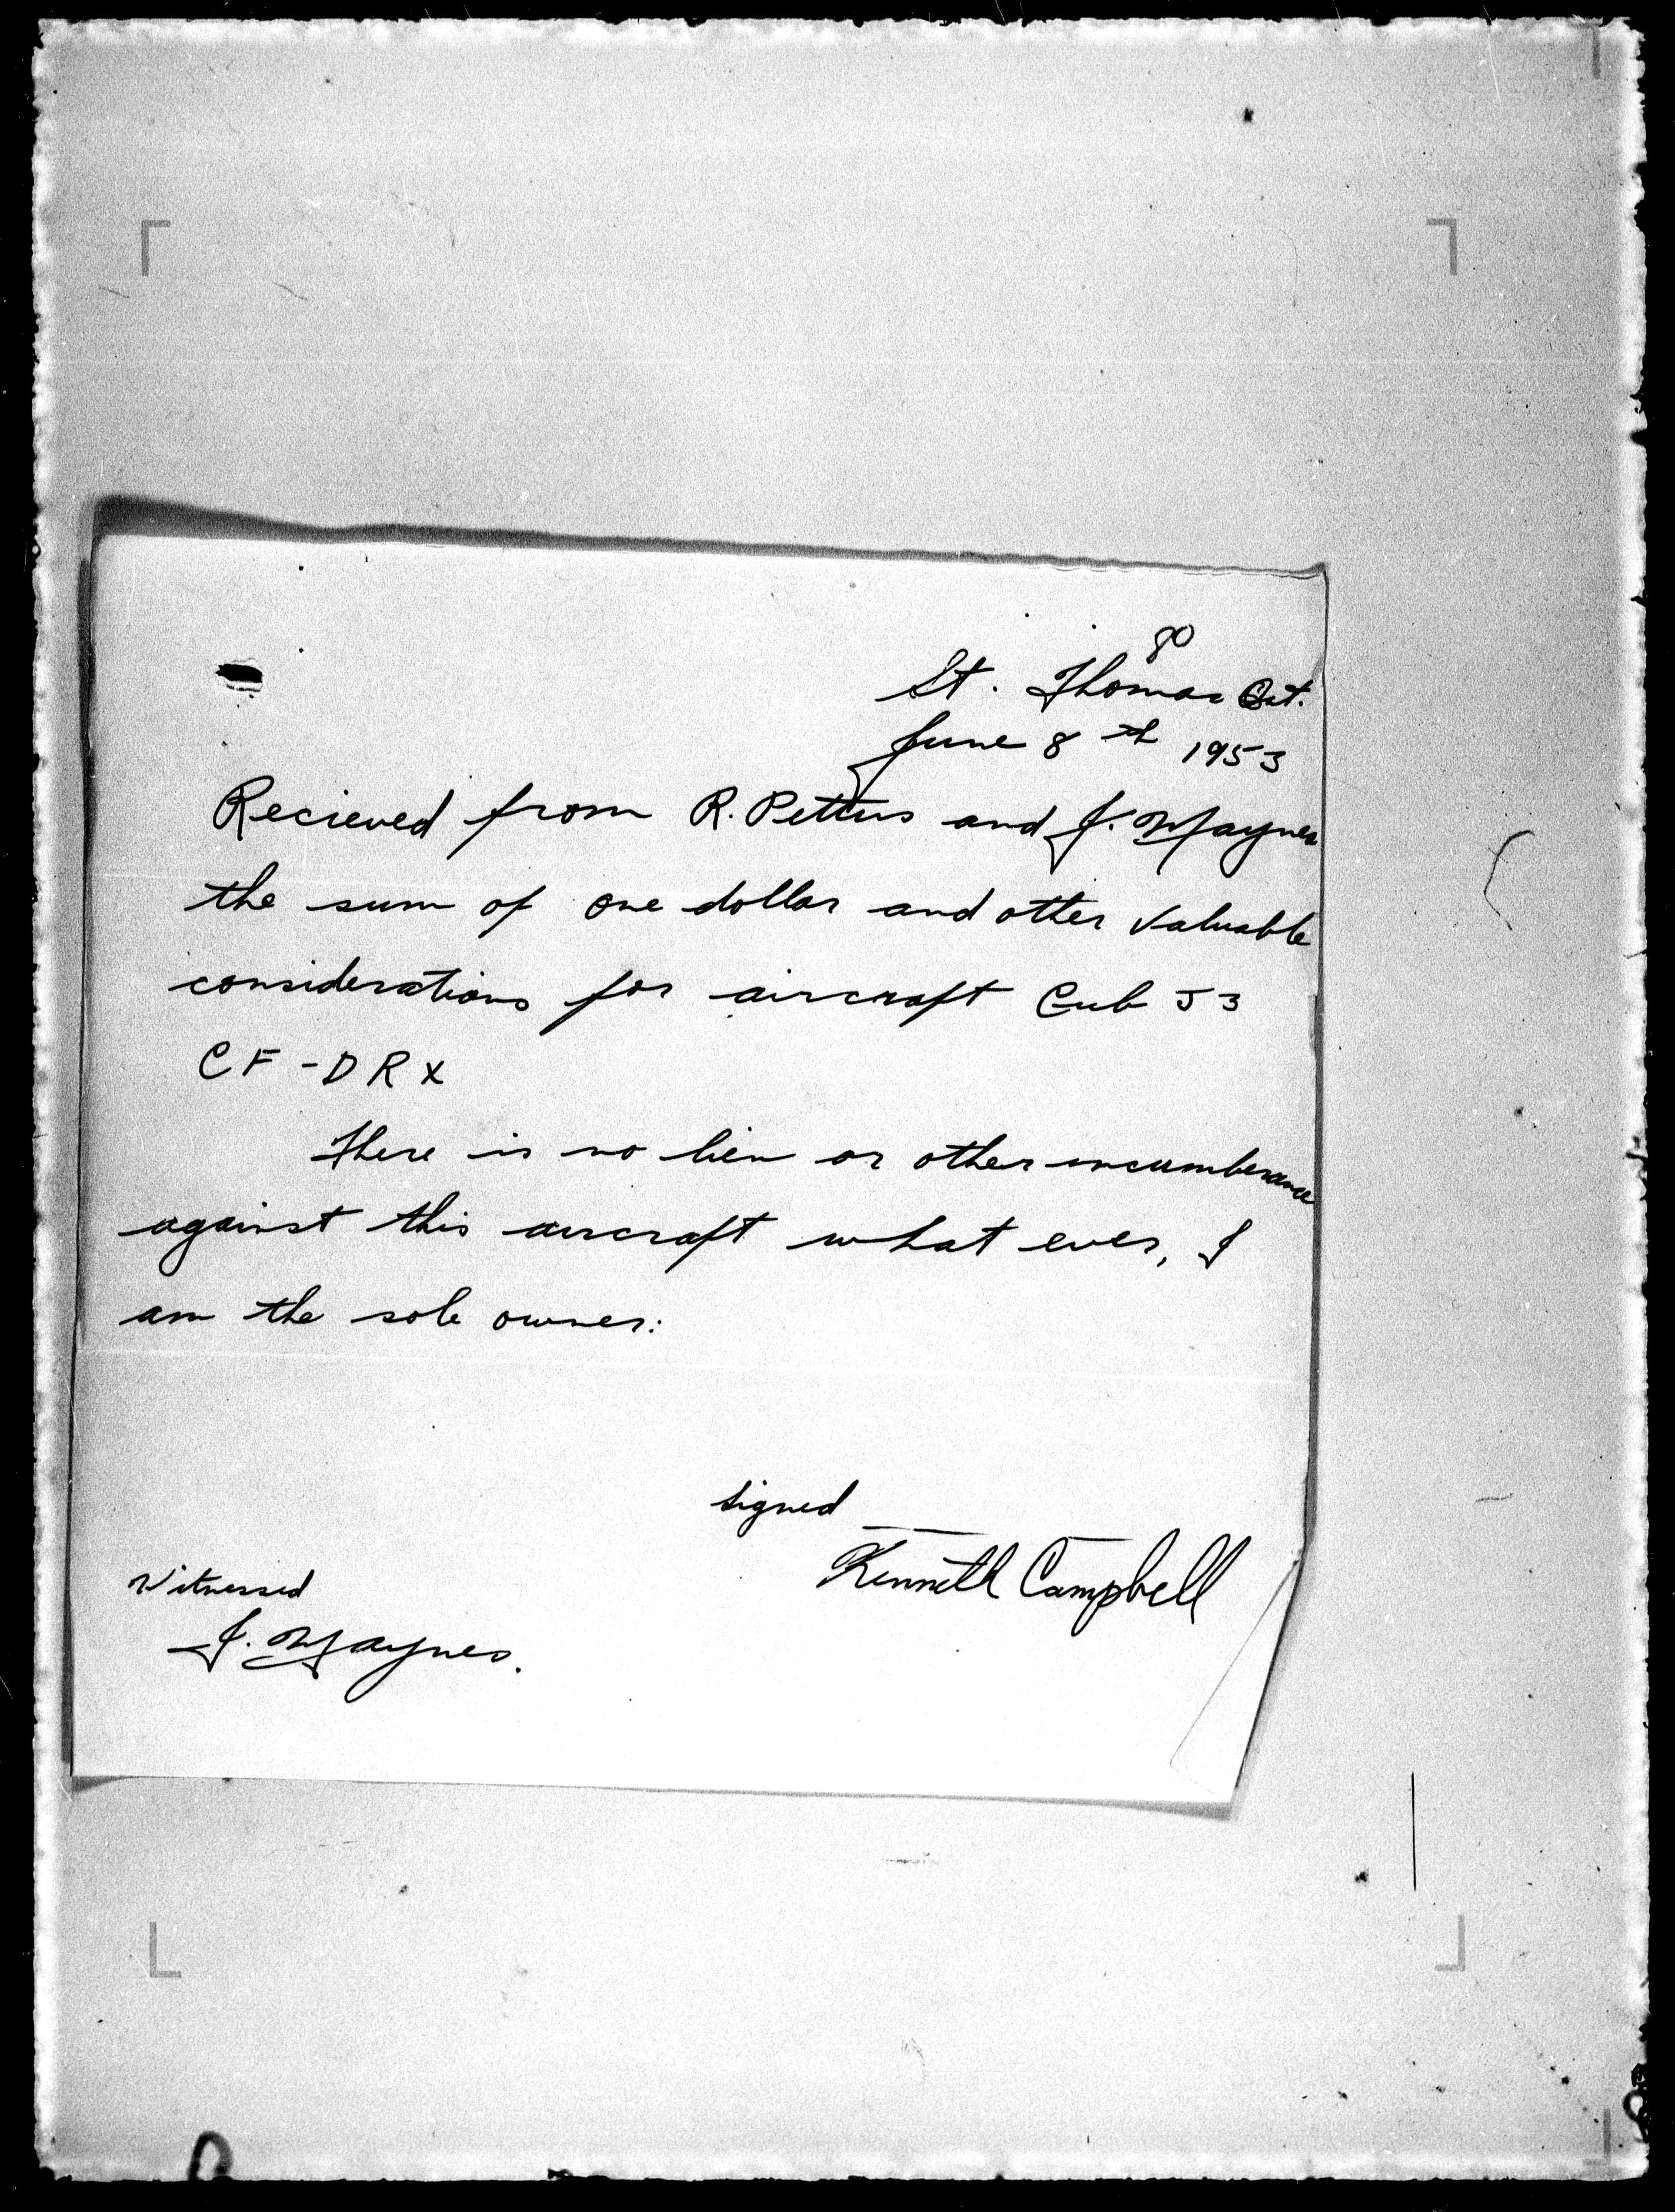 80
St. Thomas Ont.
June 8th 1953
Recieved from R. Pettus and J. Maynes
the sum of one dollar and other valuable
considerations for aircraft Cub J3
CF-DRX
There is no lien or other encumberance
against this aircraft what ever, I
am the sole owner:
signed
Kenneth Campbell
Witnessed
J. Maynes.